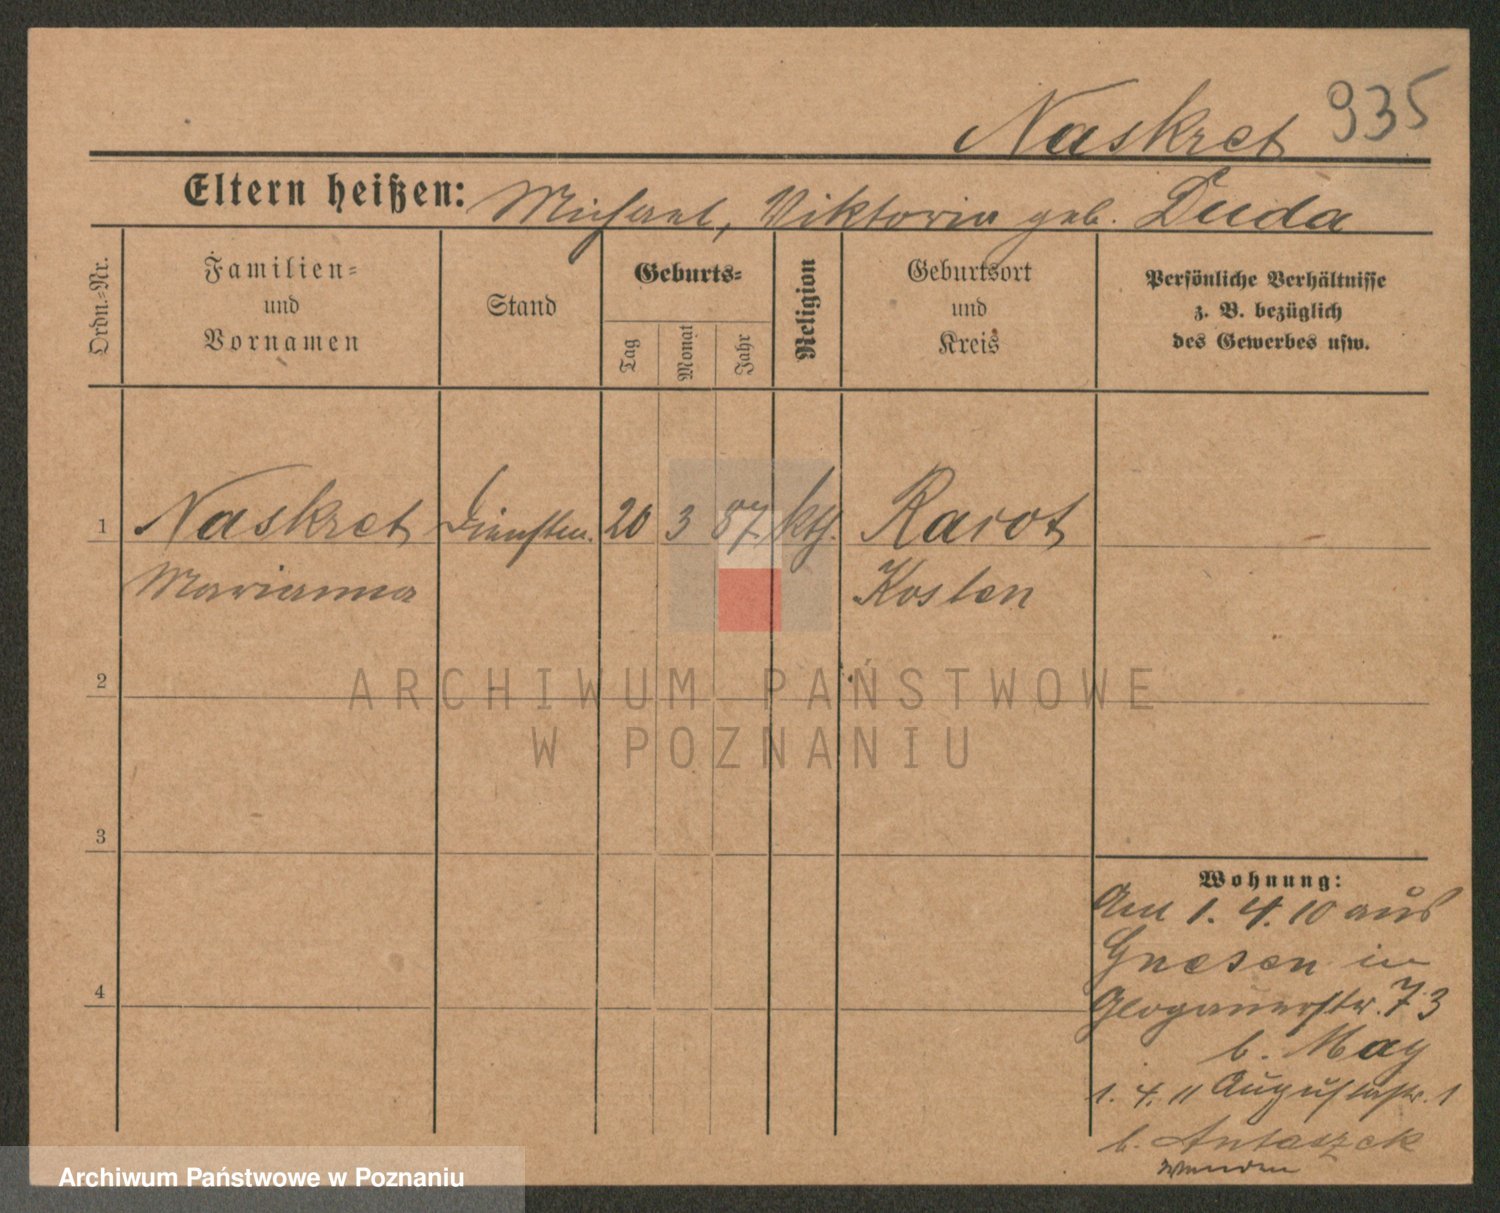 Naskret 935
Eltern heißen: Michael, Viktoria geb. Duda
Ordn.-Nr.
Familien-
und
Vornamen
Stand
Geburts-
Tag
Monat
Jahr
Religion
Geburtsort
und
Kreis
Persönliche Verhältnisse
z. B. bezüglich
des Gewerbes usw.
1 Naskret Dienstm. 20 3 87 kth. Rarot
Marianna Kosten
2
ARCHIWUM PAŃSTWOWE
W POZNANIU
3
Wohnung:
Am 1. 4. 10 aus
Gnesen in
4
Glogauerstr. 73
b. May
1. 4. 11 Augustastr. 1
b. Antaszek
wenden
Archiwum Państwowe w Poznaniu